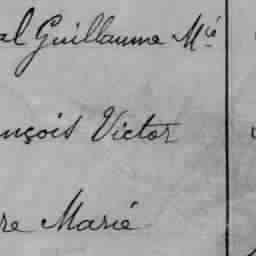 al Guillaume Mié
nçois Victor
re Marié